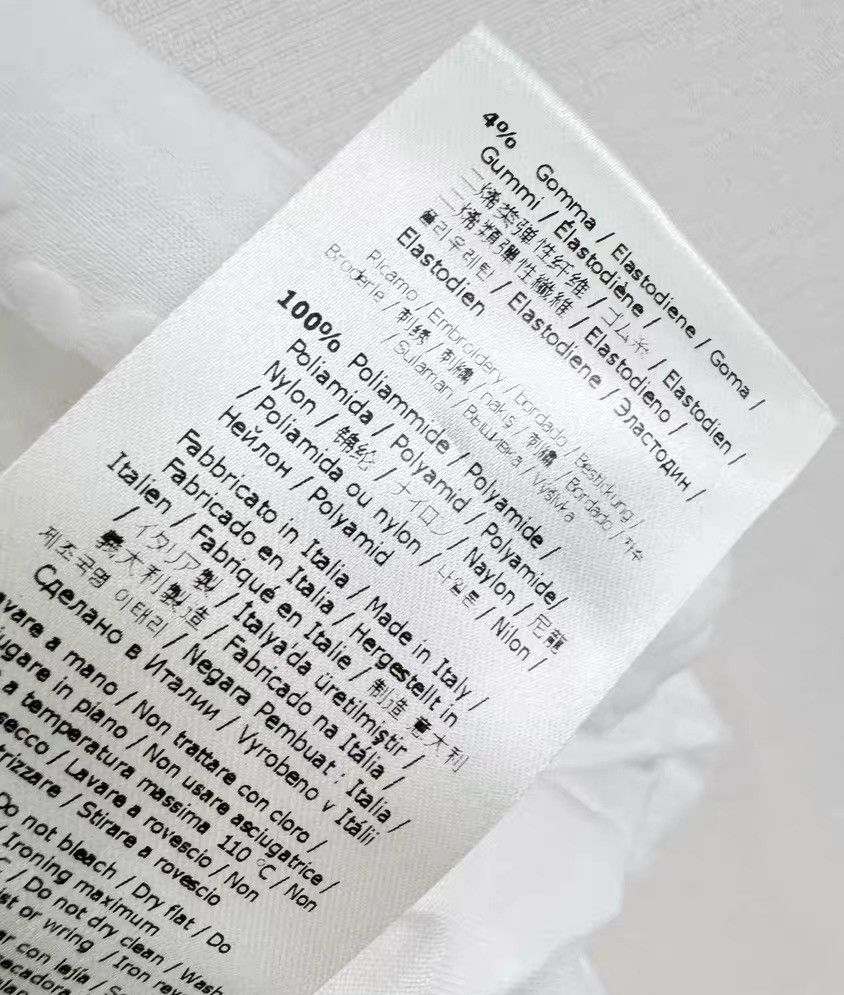 4% Gomma / Elastodiene / Goma /
Gummi / Élastodiène / Elastodien /
二烯类弹性纤维 / ゴム糸 / Elastodien /
二烯類彈性纖維 / Elastodieno /
폴리우레탄 / Elastodiene / Эластодин /
Elastodien
Ricamo / Embroidery / bordado / Bestickung /
Broderie / 刺绣 / 刺繡 / nakış / 刺繍 / Bordado / 자수
/ Sulaman / Вышивка / Výšivka
100% Poliammide / Polyamide /
Poliamida / Polyamid / Polyamide /
Nylon / 锦纶 / ナイロン / Naylon / 尼龍
/ Poliamida ou nylon / 나일론 / Nilon /
Нейлон / Polyamid
Fabbricato in Italia / Made in Italy /
Fabricado en Italia / Hergestellt in
Italien / Fabriqué en Italie / 制造 意大利
/ イタリア製 / İtalya'da üretilmiştir /
義大利製造 / Fabricado na Itália /
제조국명 이태리 / Negara Pembuat : Italia /
Сделано в Италии / Vyrobeno v Itálii
a mano / Non trattare con cloro /
in piano / Non usare asciugatrice /
a temperatura massima 110 °C / Non
secco / Lavare a rovescio / Non
/ Stirare a rovescio
Do not bleach / Dry flat / Do
/ Ironing maximum
/ Do not dry clean / Wash
or wring / Iron
con lejía /